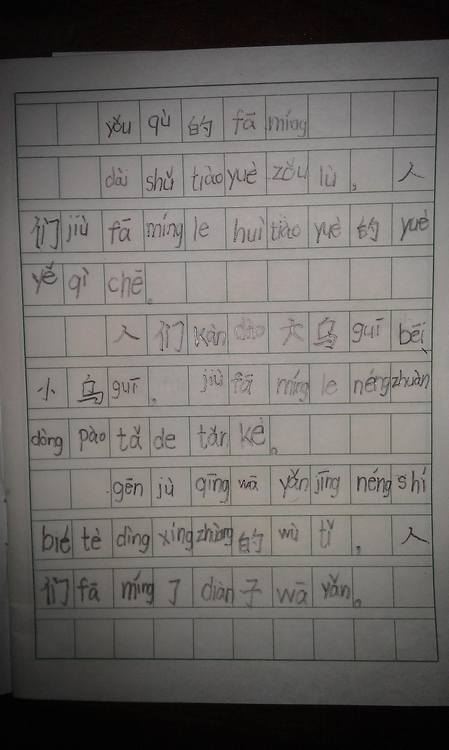 yǒu qù 的 fā míng
dài shǔ tiào yuè zǒu lù, 人
们 jiù fā míng le huì tiào yuè 的 yuè
yě qì chē。
人们 kàn dào 大乌 guī bēi
小乌 guī, jiù fā míng le néng zhuàn
dòng pào tǎ de tǎn kè。
gēn jù qīng wā yǎn jīng néng shí
bié tè dìng xíng zhuàng 的 wù tǐ, 人
们 fā míng 了 diàn 子 wā yǎn。